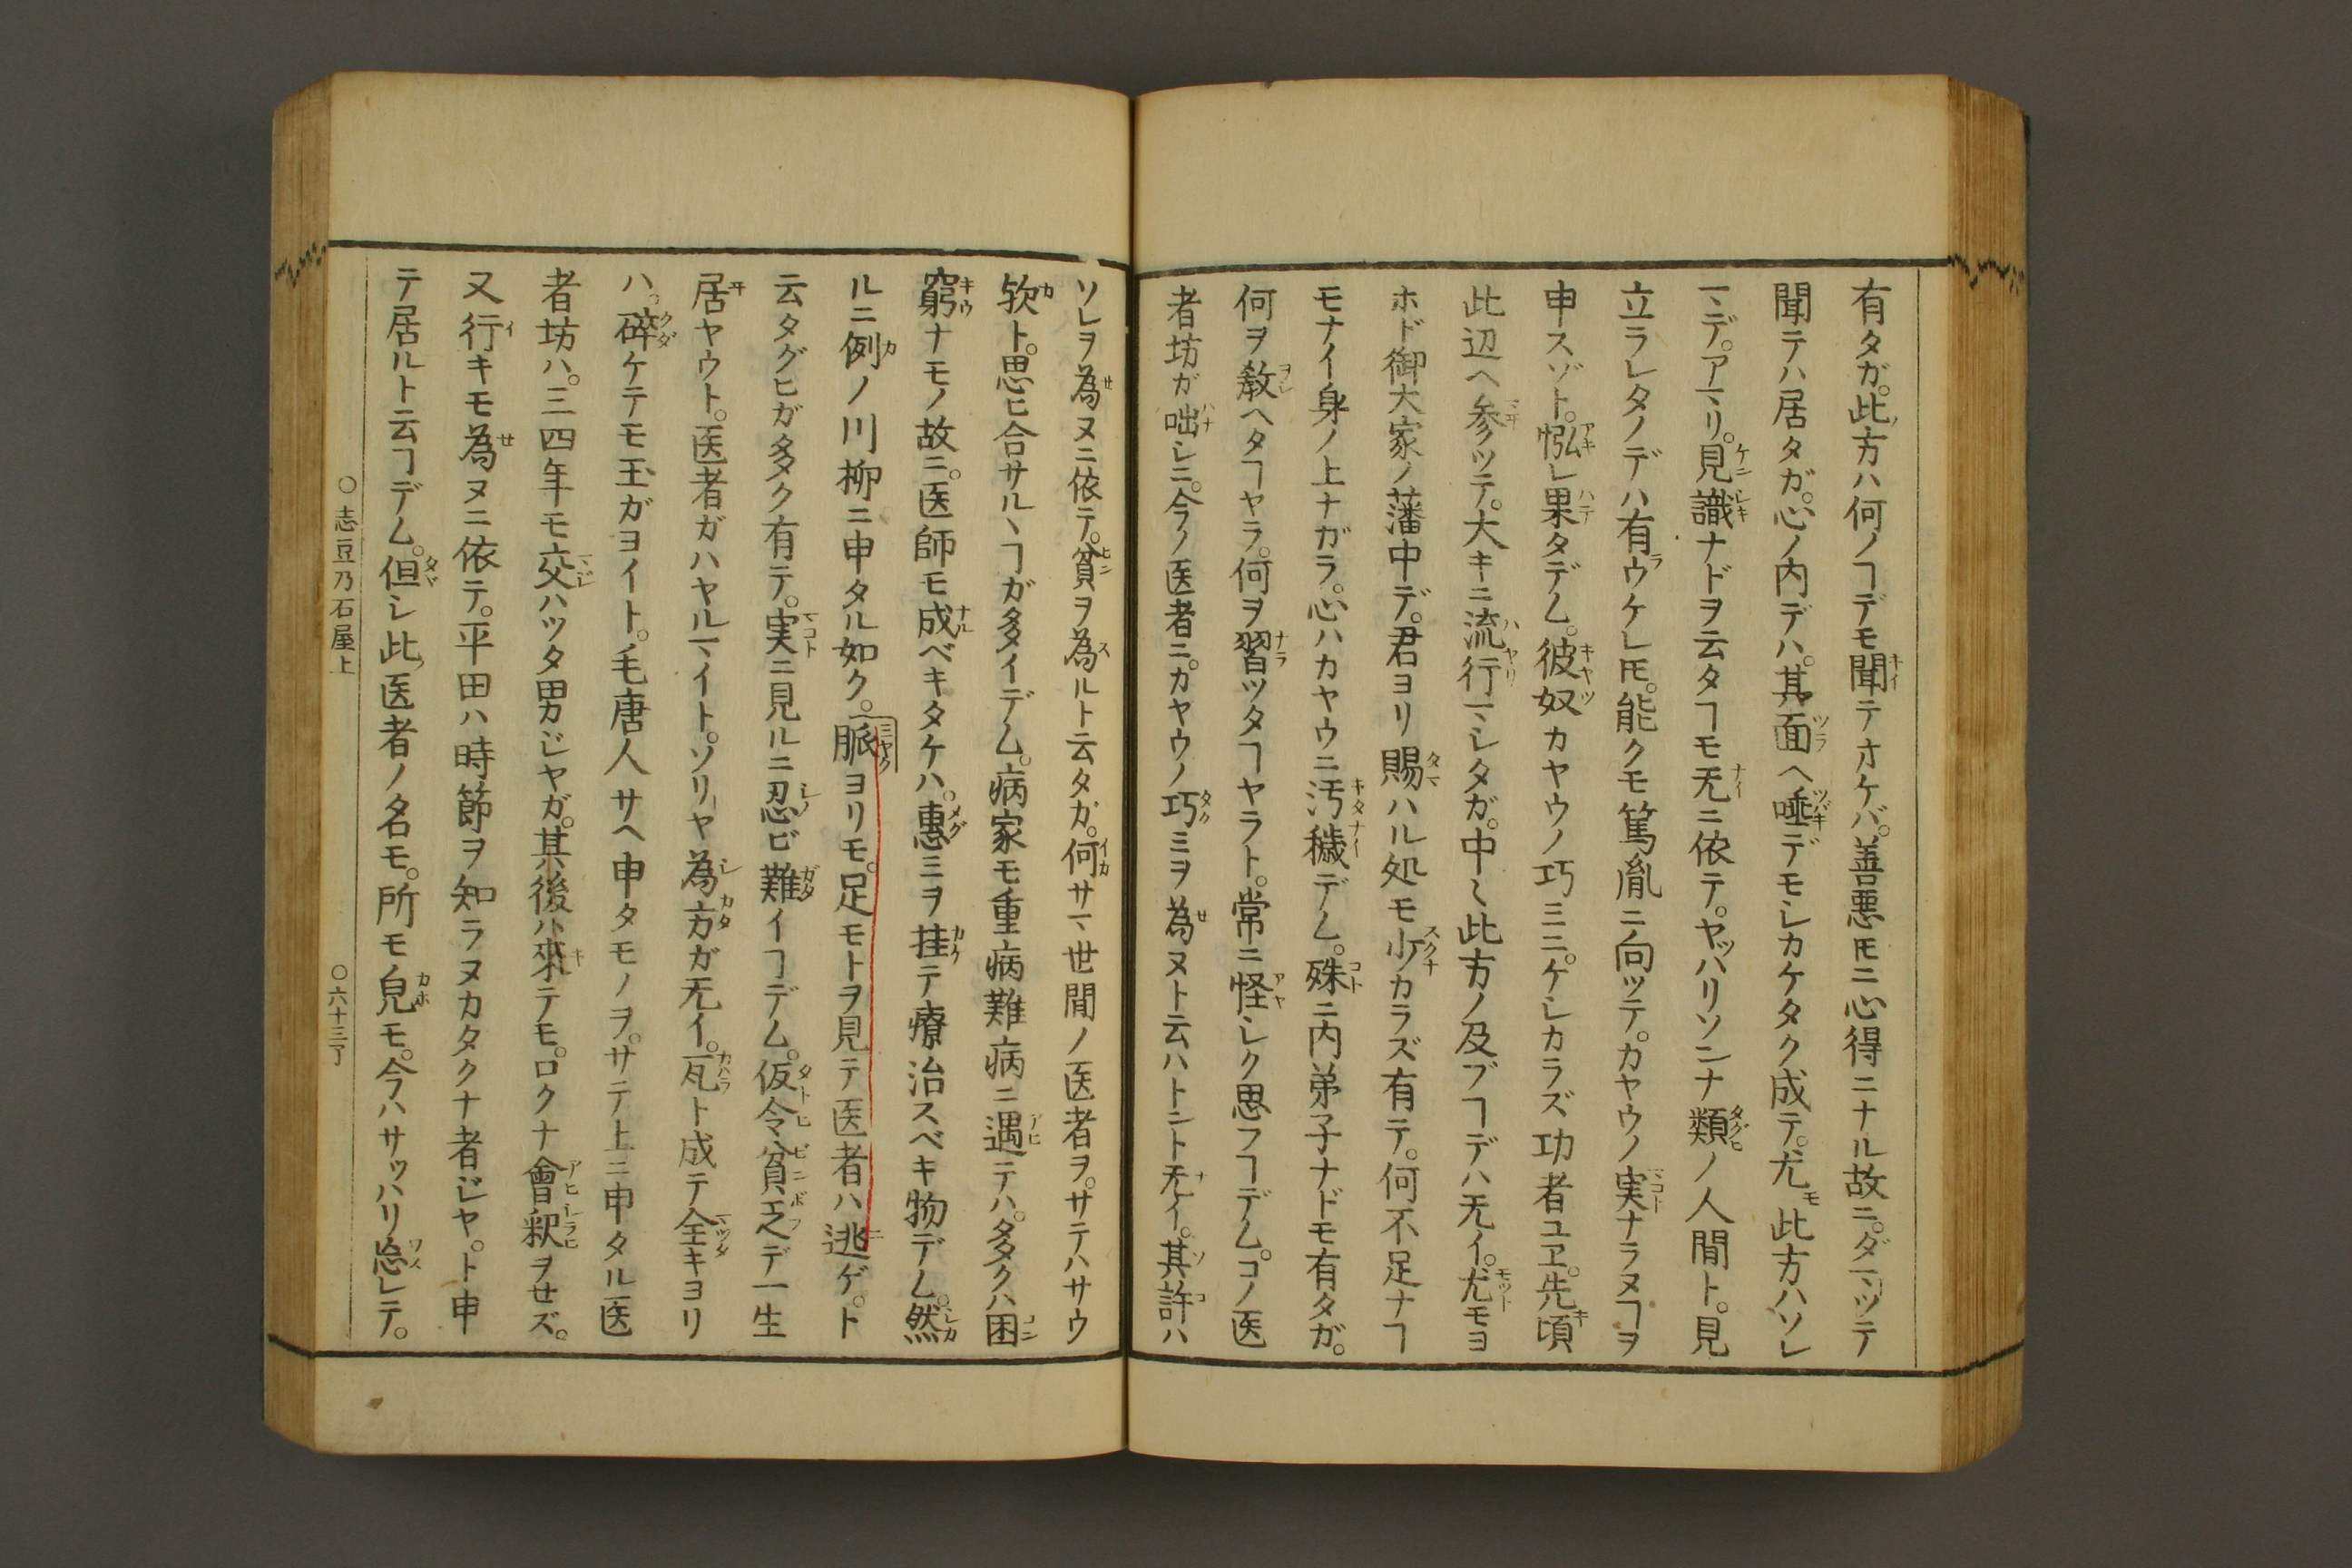 有タガ。此方ハ何ノヿデモ聞テオケバ。善悪𪜈ニ心得ニナル故ニ。ダマツテ
聞テハ居タガ。心ノ内デハ。其面ヘ唾デモシカケタク成テ。尤此方ハソレ
マデ。アマリ。見識ナドヲ云タヿモ无ニ依テ。ヤッハリソンナ類ノ人間ト。見
立ラレタノデハ有ウケレ𪜈。能クモ篤胤ニ向ツテ。カヤウノ実ナラヌヿヲ
申スゾト。㤺レ果タデム。彼奴カヤウノ巧ミニ。ケシカラズ功者ユヱ。先頃
此辺ヘ参ツテ。大キニ流行マシタガ。中〻此方ノ及ブヿデハ无イ。尤モヨ
ホド御大家ノ藩中デ。君ヨリ賜ハル処モ少カラズ有テ。何不足ナヿ
モナイ身ノ上ナガラ。心ハカヤウニ汚穢デム。殊ニ内弟子ナドモ有タガ。
何ヲ教ヘタヿヤラ。何ヲ習ツタヿヤラト。常ニ怪シク思フヿデム。コノ医
者坊ガ咄シニ。今ノ医者ニ。カヤウノ巧ミヲ為ヌト云ハトント无イ。其許ハ
ソレヲ為ヌニ依テ。貧ヲ為ルト云タガ。何サマ世間ノ医者ヲ。サテハサウ
欤ト。思ヒ合サルヽヿガ多イデム。病家モ重病難病ニ遇テハ。多クハ困
窮ナモノ故ニ。医師モ成ベキタケハ。惠ミヲ挂テ療治スベキ物デム。然
ルニ例ノ川柳ニ申タル如ク。脈ヨリモ。足モトヲ見テ医者ハ逃ゲ。ト
云タグヒガ多ク有テ。実ニ見ルニ忍ビ難イヿデム。仮令貧乏デ一生
居ヤウト。医者ガハヤルマイト。ソリヤ為方ガ无イ。瓦ト成テ全キヨリ
ハ。碎ケテモ玉ガヨイト。毛唐人サヘ申タモノヲ。サテ上ニ申タル医
者坊ハ。三四年モ交ハツタ男ジヤガ。其後ハ來テモ。ロクナ會釈ヲセズ。
又行キモ為ヌニ依テ。平田ハ時節ヲ知ラヌカタクナ者ジヤ。ト申
テ居ルト云ヿデム。但シ此医者ノ名モ。所モ皃モ。今ハサッハリ忘レテ。
○志豆乃石屋上 ○六十三丁